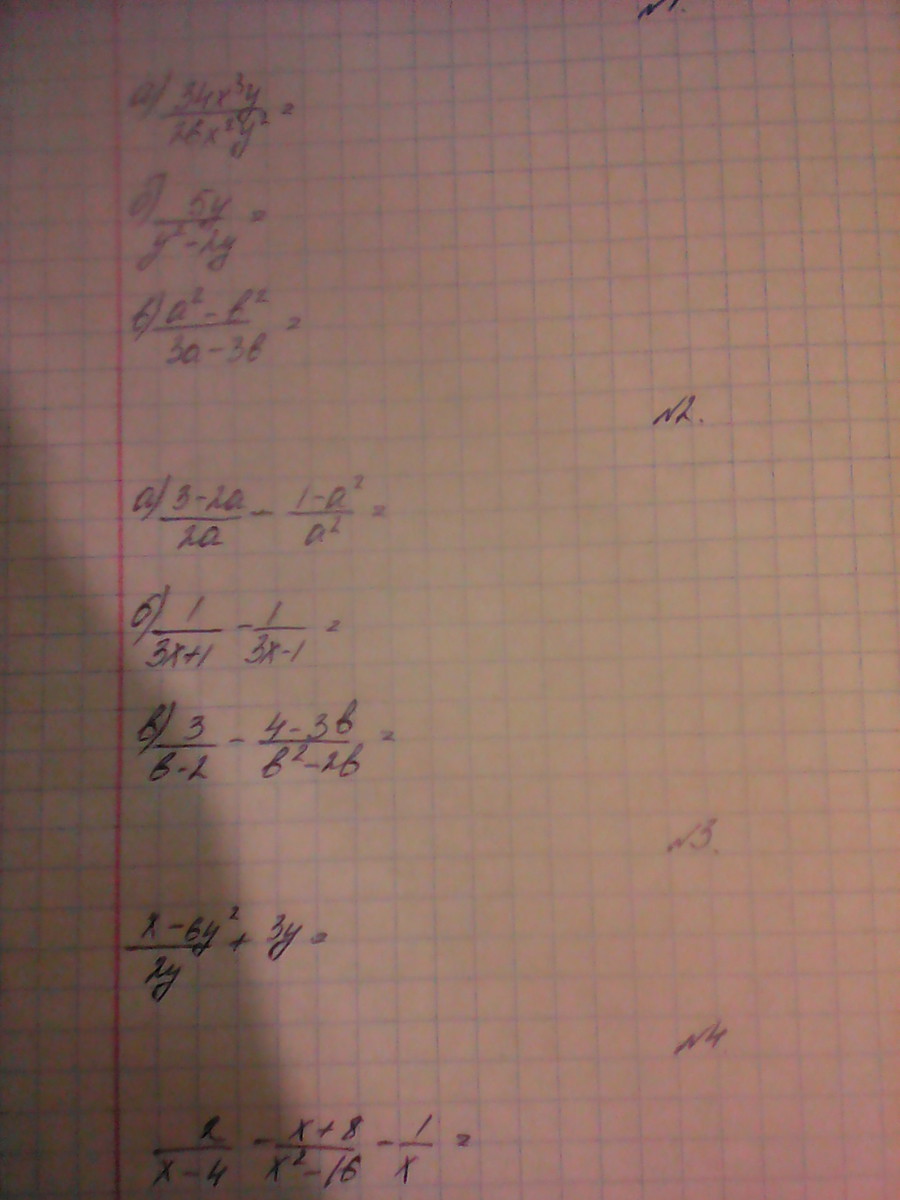 №1.
а) 34x³y / 26x²y² =
б) 5y / y²-2y =
в) a² - b² / 3a-3b =
№2.
а) 3-2a / 2a - 1-a² / a² =
б) 1 / 3x+1 - 1 / 3x-1 =
в) 3 / b-2 - 4-3b / b²-2b =
№3.
x-6y² / 2y + 3y =
№4
2 / x-4 - x+8 / x²-16 - 1 / x =